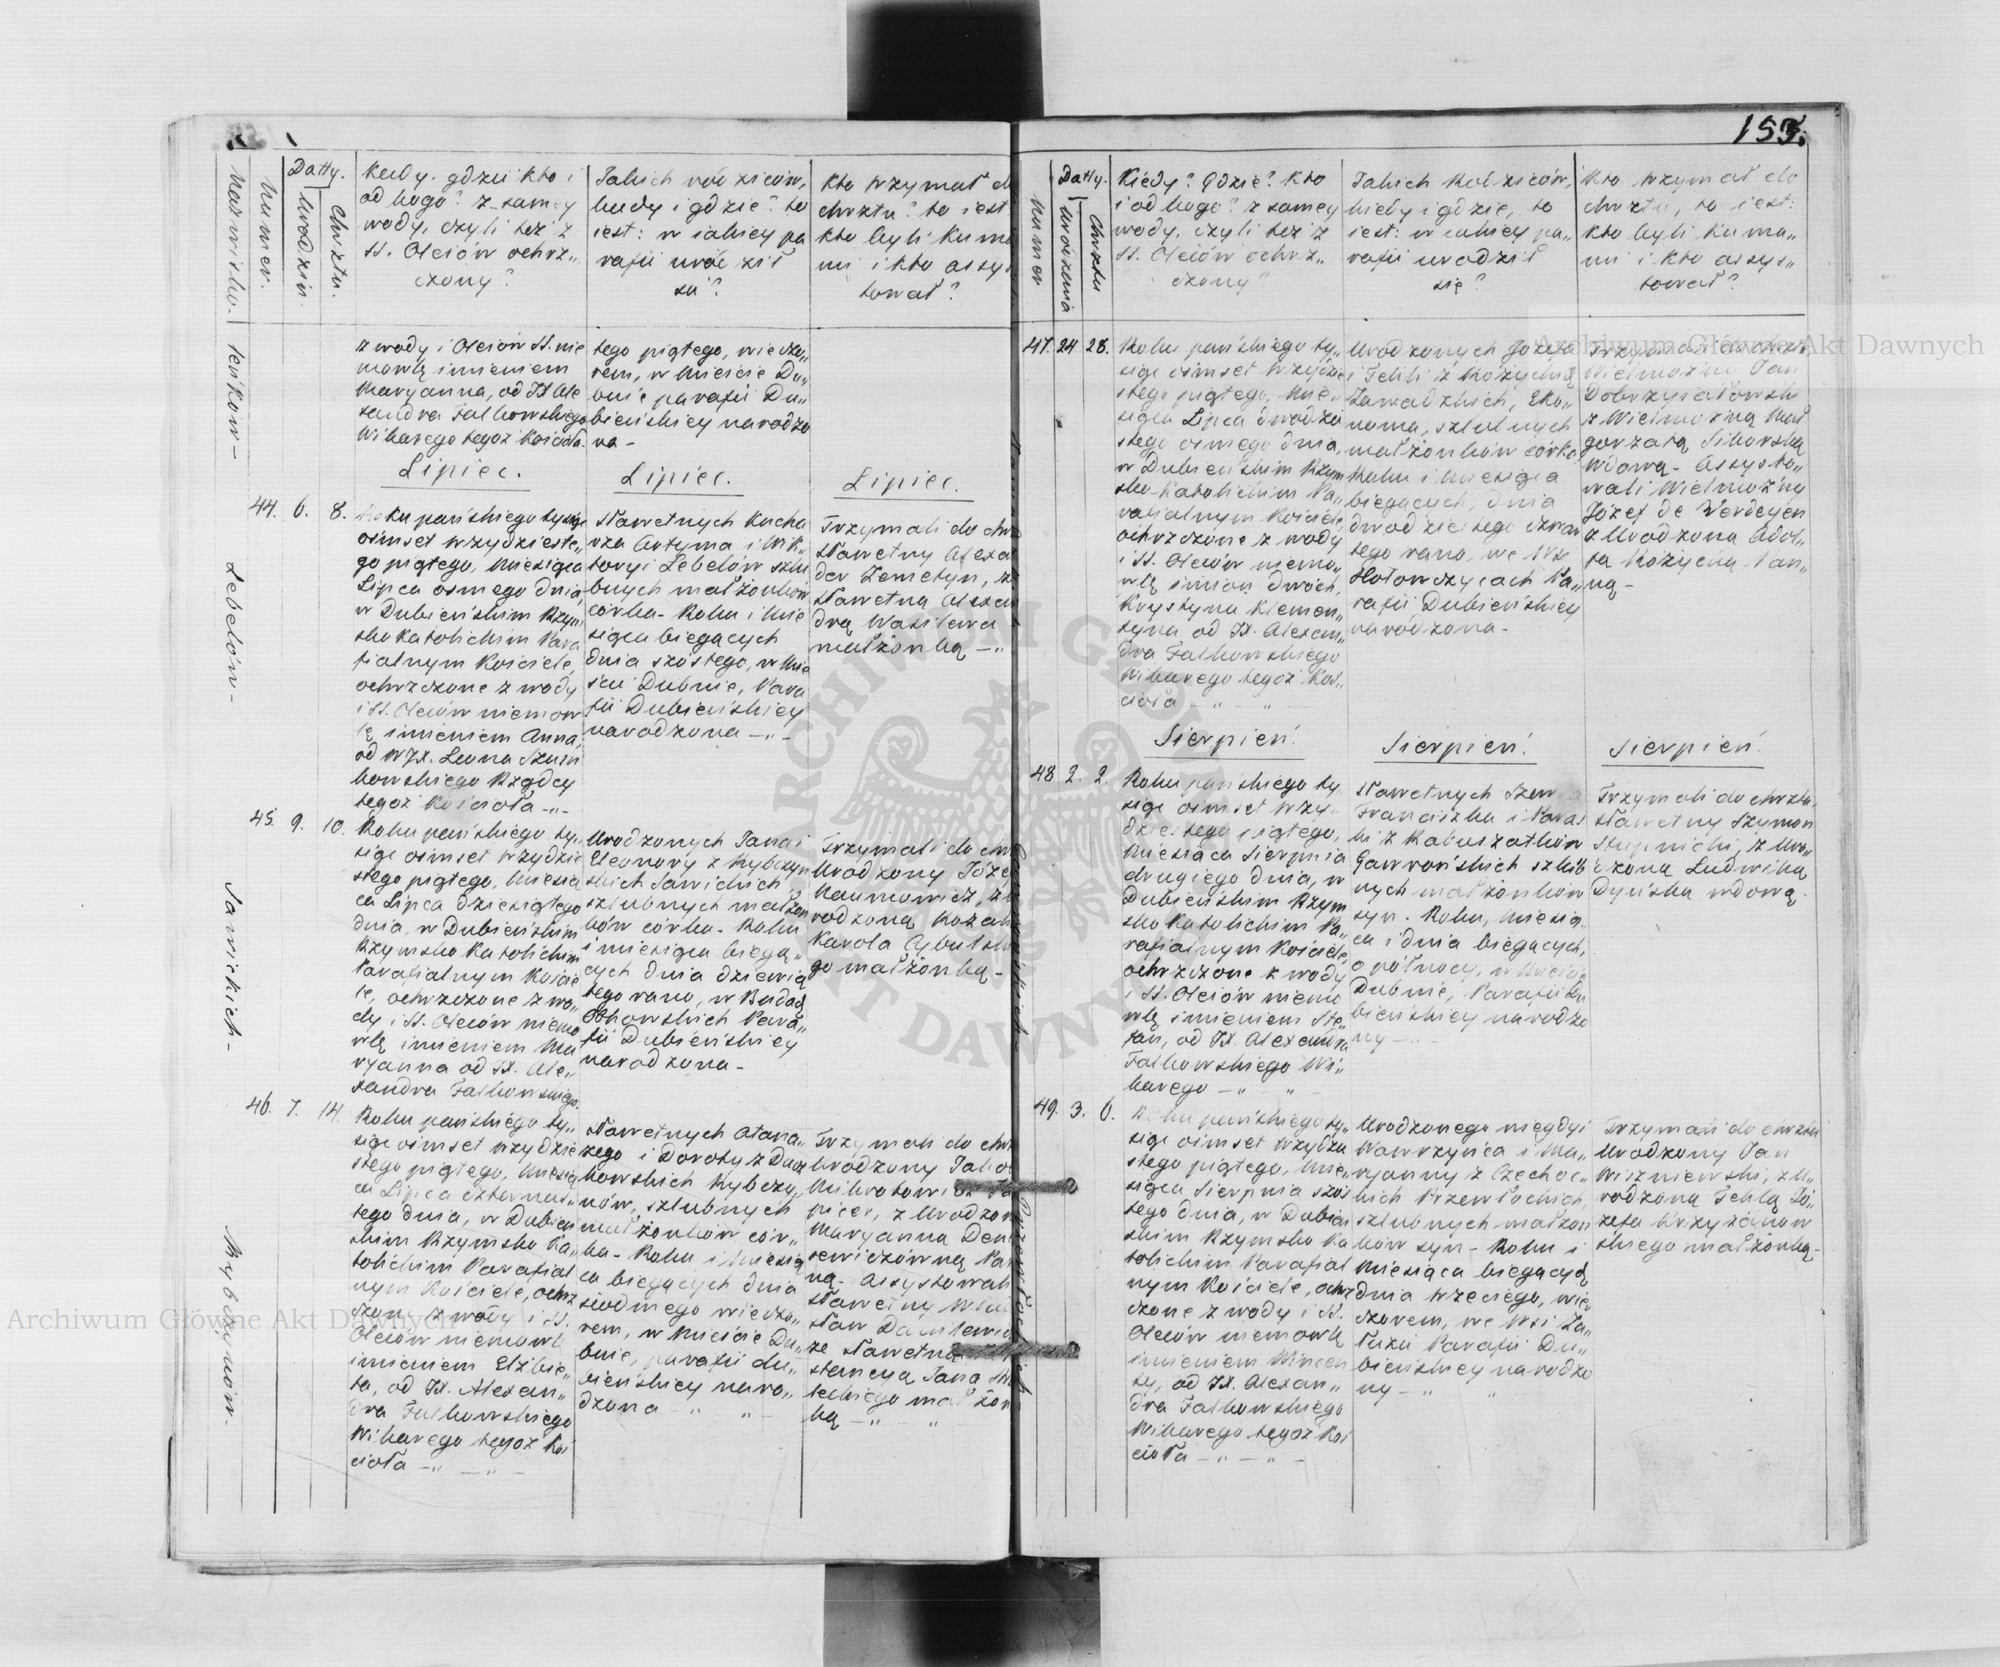 153.
Nazwisko.
Numer.
Datty.
Urodzin.
Chrztu.
Kiedy. gdzie i kto i
od kogo? z samey
wody, czyli też z
SS. Oleiów ochrz„
czony?
Jakich rodziców,
kiedy i gdzie? to
iest: w iakiey pa
rafii urodził
się?
Kto trzymał do
chrztu? to iest
kto byli Kuma
mi i kto assys
tował?
z wody i Oleiów SS. nie
mowlę imieniem
Maryanna, od JX Ale
xandra Falkowskiego
Wikarego tegoż Kościoła.
tego piątego, wieczo„
rem, w Mieście Du„
bnie parafii Du„
bieńskiey narodzo
na -
Lipiec.
Lipiec.
Lipiec.
Lebelów -
44. 6. 8.
Roku pańskiego tysiąc
ośmset trzydzieste„
go piątego, Miesiąca
Lipca osmego dnia,
w Dubieńskim Rzym
sko Katolickim Para
fialnym Kościele
ochrzczone z wody
i SS. Oleiów niemow
lę imieniem Anna,
od WJX. Leona Szum
kowskiego Rządcy
tegoż Kościoła -„-
Sławetnych Kucha
rza Artyma i Wik„
toryi Lebelów szlu
bnych małżonków
córka - Roku i Mie
siąca biegących
dnia szóstego, w Mie
ście Dubnie, Para
fii Dubieńskiey
narodzona -„-
Trzymali do chrz
Sławetny Alexan
der Zemetyn, z
Sławetną Alexan
drą Wasilewa
małżonką -„
Sawickich -
45. 9. 10.
Roku pańskiego ty„
siąc ośmset trzydzie
stego piątego, Miesią
ca Lipca dziesiątego
dnia, w Dubieńskim
Rzymsko Katolickim
Parafialnym Koście
le, ochrzczone z wo„
dy i SS. Oleiów niemo
wlę imieniem Ma
ryanna od JX. Ale„
xandra Falkowskiego.
Urodzonych Jana i
Eleonory z Rybczyń
skich Sawickich
szlubnych małżon
ków córka - Roku
i miesiąca biegą„
cych dnia dziewią
tego rano, w
Para„
fii Dubieńskiey
narodzona -
Trzymali do chrz
Urodzony Józef
Naumowicz, z U
rodzoną
Karola Cybulskie
go małżonką -
Rybczynów.
46. 7. 14.
Roku pańskiego ty„
siąc ośmset trzydzie
stego piątego, Miesią
ca Lipca czternas„
tego dnia, w Dubień
skim Rzymsko Ka„
tolickim Parafial
nym Kościele, ochrz
czone z wody i SS.
Oleiów niemowlę
imieniem Elżbie„
ta, od JX. Alexan„
dra Falkowskiego
Wikarego tegoż Koś
cioła -„ -„ -
Sławetnych Atana„
zego i Doroty z
kowskich Rybczy„
nów, szlubnych
małżonków cór„
ka - Roku i Miesią
ca biegących dnia
siodmego wieczo„
rem, w Mieście Du„
bnie, parafii du„
bieńskiey naro„
dzona -„ „ -
Trzymali do chrz
Urodzony Jakob
z Urodzon
Maryanna
Pan
ną - Assystowali
Sławetny
ze Sławetną
Jana
małżon
ką -„ -„
Numer
Datty.
Urodzenia
Chrztu
Kiedy? Gdzie? kto
i od kogo? z samey
wody, czyli też z
SS. Oleiów ochrz„
czony?
Jakich Rodziców,
kiedy i gdzie, to
iest: w iakiey pa„
rafii urodził
się?
Kto trzymał do
chrztu, to iest:
kto byli Kuma„
mi i kto assys„
tował?
47. 24 28.
Roku pańskiego ty„
siąc ośmset trzydzie
stego piątego, Mie„
siąca Lipca dwódzie
stego osmego dnia,
w Dubieńskim Rzym
sko-Katolickim Pa„
rafialnym Kościele,
ochrzczone z wody
i SS. Oleiów niemo„
wlę imion dwóch,
Krystyna Klemen„
tyna od JX. Alexan„
dra Falkowskiego
Wikarego tegoż Koś„
cioła -„ -„
Urodzonych Józefa
i Tekli z Rożyckich
Zawadzkich, Eko„
noma, szlubnych
małżonków córka,
Roku i Miesiąca
biegących, dnia
dwódziestego czwar
tego rano, we Wsi
Hołowczycach Pa„
rafii Dubieńskiey
narodzona -
Trzymali do chrztu
Wielmożny Pan
Dobrzyiałowski
z Wielmożną Mał
gorzatą Sikorską
wdową - Assysto„
wali Wielmożny
Józef de Werdeyen
z Urodzoną Adol„
fą Rożycką Pan„
ną -
Sierpień.
Sierpień.
Sierpień.
48 2. 2.
Roku pańskiego ty
siąc ośmset trzy„
dziestego piątego,
Miesiąca Sierpnia
drugiego dnia, w
Dubieńskim Rzym
sko Katolickim Pa„
rafialnym Kościele,
ochrzczone z wody
i SS. Oleiów niemo
wlę imieniem Ste„
fan, od JX. Alexandra
Falkowskiego Wi„
karego -„ „
Sławetnych Szewca
Franciszka i Paras
ki z Kabuszatków
Gawrońskich szlub
nych małżonków
syn - Roku, Miesią„
ca i dnia biegących,
o północy, w Mieście
Dubnie, Parafii Du
bieńskiey narodzo
ny -„-
Trzymali do chrztu,
Sławetny Szymon
Słupnicki, z Uro„
dzoną Ludwiką
Dyńską wdową -
49. 3. 6.
Roku pańskiego ty„
siąc ośmset trzydzie
stego piątego, Mie„
siąca Sierpnia szós
tego dnia, w Dubień
skim Rzymsko Ka
tolickim Parafial
nym Kościele, ochrz
czone z wody i SS.
Oleiów niemowlę
imieniem Wincen
ty, od JX. Alexan„
dra Falkowskiego
Wikarego tegoż Koś
cioła -„ -„ -
Urodzonego niegdyś
Wawrzyńca i Ma„
ryanny z Czechoc„
kich Przewłockich,
szlubnych małżon
ków syn - Roku i
Miesiąca biegących
dnia trzeciego, wie„
czorem, we Wsi Za„
Parafii Du„
bieńskiey narodzo
ny -„ „
Trzymali do chrztu
Urodzony Jan
Wiszniewski, z U„
rodzoną Teklą Jó„
zefa Krzyżanow
skiego małżonką -
Archiwum Główne Akt Dawnych
Archiwum Główne Akt Dawnych
ARCHIWUM GŁÓWNE AKT DAWNYCH